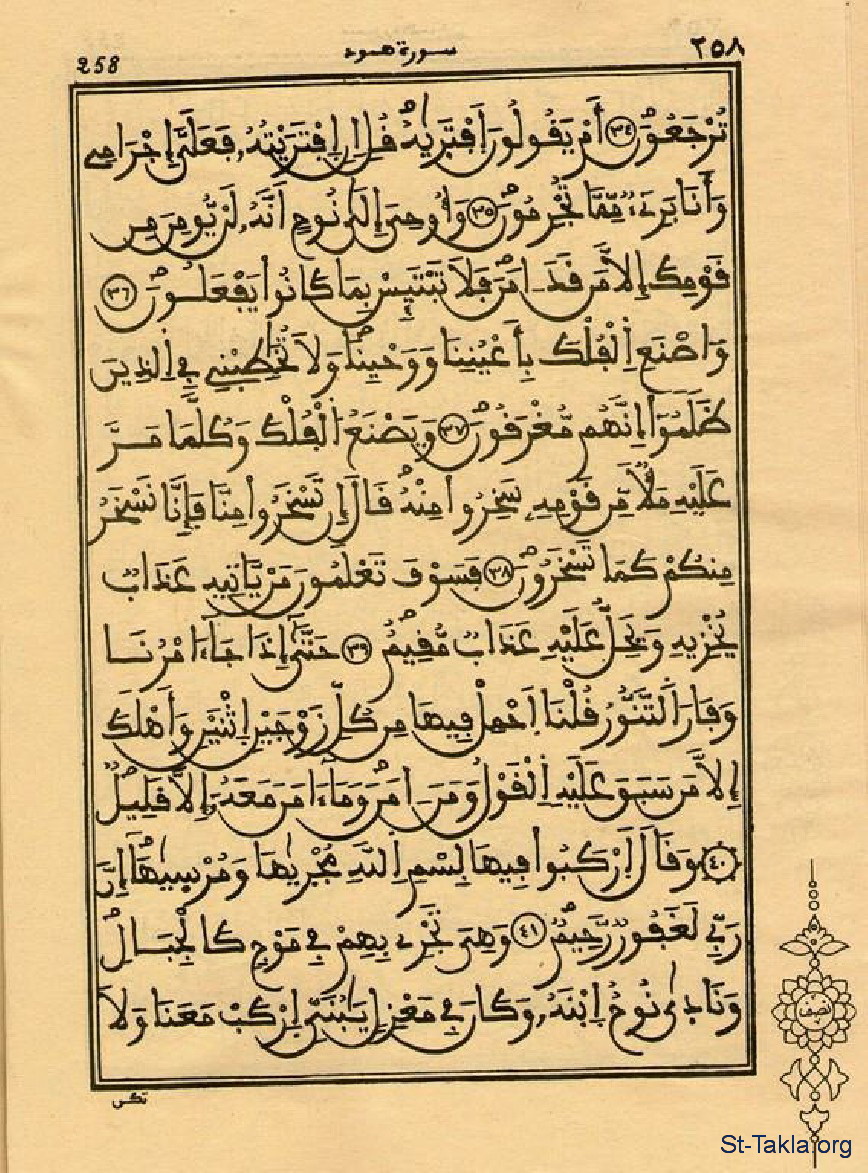 258 سورة هود ٢٥٨
تُرْجَعُونَ ٣٤ أَمْ يَقُولُونَ اَفْتَرِيٰهُ قُلِ اِنِ اِفْتَرَيْتُهُۥ فَعَلَيَّ إِجْرَامِے
وَأَنَا بَرِےٓءٌ مِّمَّا تُجْرِمُونَ ٣٥ وَأُوحِيَ إِلَىٰ نُوحٍ اَنَّهُۥ لَنْ يُّومِنَ مِن
قَوْمِكَ إِلَّا مَن قَدَ اٰمَنَ فَلَا تَبْتَئِسْ بِمَا كَانُواْ يَفْعَلُونَ ٣٦
وَاصْنَعِ اِلْفُلْكَ بِأَعْيُنِنَا وَوَحْيِنَا وَلَا تُخَٰطِبْنِے فِے اِلذِينَ
ظَلَمُوٓاْ إِنَّهُم مُّغْرَقُونَ ٣٧ وَيَصْنَعُ اُلْفُلْكَ وَكُلَّمَا مَرَّ
عَلَيْهِ مَلَأٌ مِّن قَوْمِهِۦ سَخِرُواْ مِنْهُ قَالَ إِن تَسْخَرُواْ مِنَّا فَإِنَّا نَسْخَرُ
مِنكُمْ كَمَا تَسْخَرُونَ ٣٨ فَسَوْفَ تَعْلَمُونَ مَنْ يَّاتِيهِ عَذَابٌ
يُخْزِيهِ وَيَحِلُّ عَلَيْهِ عَذَابٌ مُّقِيمٌ ٣٩ حَتَّىٰٓ إِذَا جَآءَ امْرُنَا
وَفَارَ اَلتَّنُّورُ قُلْنَا اَحْمِلْ فِيهَا مِن كُلِّ زَوْجَيْنِ اِثْنَيْنِ وَأَهْلَكَ
إِلَّا مَن سَبَقَ عَلَيْهِ اِلْقَوْلُ وَمَنَ اٰمَنَ وَمَآ ءَامَنَ مَعَهُۥٓ إِلَّا قَلِيلٌ
٤٠ وَقَالَ اَرْكَبُواْ فِيهَا بِسْمِ اِللَّهِ مُجْرَيٰهَا وَمُرْسَيٰهَآ إِنَّ
رَبِّے لَغَفُورٌ رَّحِيمٌ ٤١ وَهِيَ تَجْرِے بِهِمْ فِے مَوْجٍ كَالْجِبَالِ
وَنَادَىٰ نُوحٌ اِبْنَهُۥ وَكَانَ فِے مَعْزِلٍ يَٰبُنَيِّ اِرْكَبْ مَعَنَا وَلَا
تكن
نصف
St-Takla.org